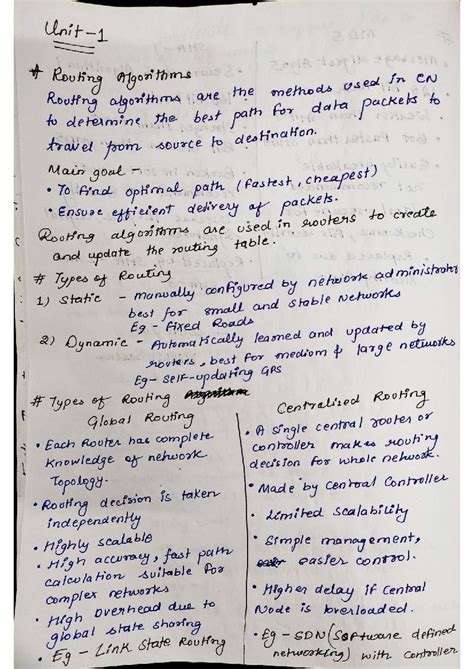 Unit-1
# Routing Algorithms
Routing algorithms are the methods used in CN
to determine the best path for data packets to
travel from source to destination.
Main goal -
• To find optimal path (Fastest, cheapest)
• Ensure efficient delivery of packets.
Routing algorithms are used in routers to create
and update the routing table.
# Types of Routing
1) Static - manually configured by network administrator
best for small and stable Networks
Eg - Fixed Roads
2) Dynamic - Automatically learned and updated by
routers, best for medium & large networks
Eg - Self-updating GPS
# Types of Routing
Global Routing
• Each Router has complete
knowledge of network
Topology.
• Routing decision is taken
independently
• Highly scalable
• High accuracy, fast path
calculation suitable for
complex networks
• High overhead due to
global state sharing
Eg - Link State Routing
Centralised Routing
• A single central router or
controller makes routing
decision for whole network.
• Made by central Controller
• Limited Scalability
• Simple management,
easier control.
• Higher delay if Central
Node is overloaded.
• Eg - SDN (Software defined
networking) with controller